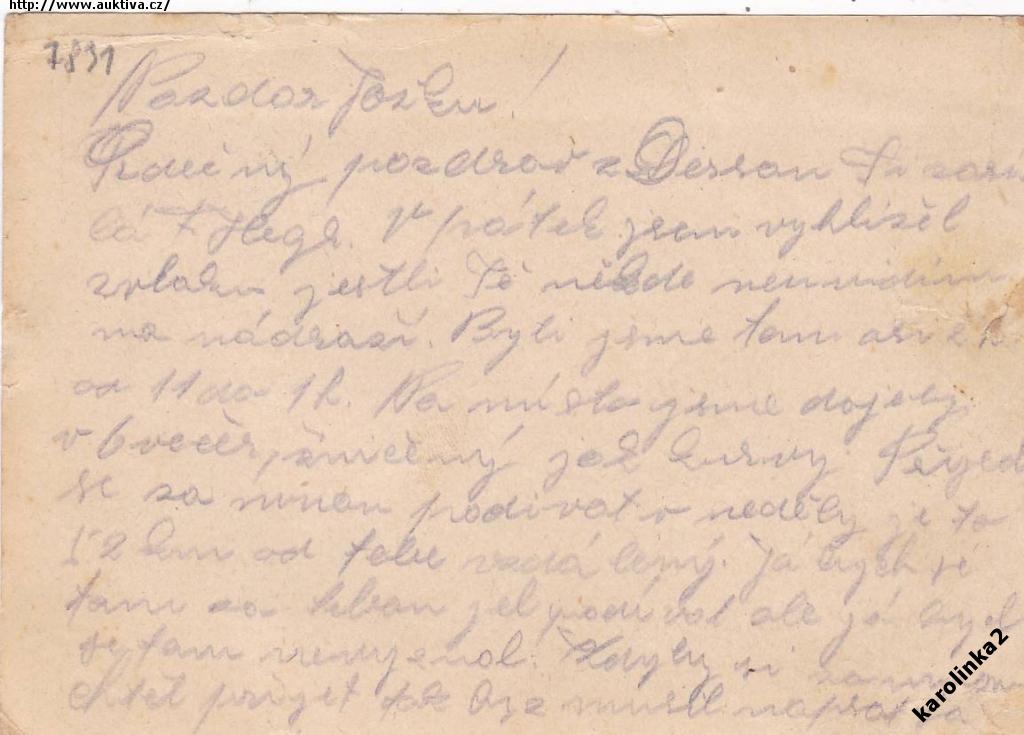 http://www.auktiva.cz/
7831
Nazdar Jožku!
Srdečný pozdrav z Dessau Ti zasí
lá F. Hegr. V pátek jsem vyhlížěl
z vlaku jestli Tě někde neuvidím
na nádraží. Byli jsme tam asi 2 h.
od 11 do 1 h. Na místo jsme dojely
v 6 večěr, zničěný jak kurvy. Přijed
se za mnou podívat v neděly je to
52 km od tebe vzdálený. Já bych se
tam za tebou jel podívat ale já bych
se tam nevyznal. Kdyby si za mnou
chtěl přijet tak bys musil napsat
karolinka2